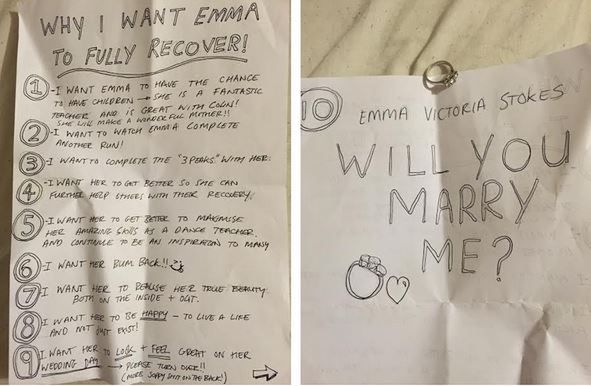 WHY I WANT EMMA
TO FULLY RECOVER!
1 - I WANT EMMA TO HAVE THE CHANCE
TO HAVE CHILDREN → SHE IS A FANTASTIC
TEACHER AND IS GREAT WITH COLIN!
SHE WILL MAKE A WONDERFUL MOTHER!!
2 - I WANT TO WATCH EMMA COMPLETE
ANOTHER RUN!
3 - I WANT TO COMPLETE THE "3 PEAKS" WITH HER.
4 - I WANT HER TO GET BETTER SO SHE CAN
FURTHER HELP OTHERS WITH THEIR RECOVERY.
5 - I WANT HER TO GET BETTER TO MAXIMISE
HER AMAZING SKILLS AS A DANCE TEACHER.
AND CONTINUE TO BE AN INSPIRATION TO MANY
6 I WANT HER BUM BACK!!
7 - I WANT HER TO REALISE HER TRUE BEAUTY
BOTH ON THE INSIDE + OUT.
8 - I WANT HER TO BE HAPPY - TO LIVE A LIFE
AND NOT JUST EXIST!
9 - I WANT HER TO LOOK + FEEL GREAT ON HER
WEDDING DAY → PLEASE TURN OVER!!
(MORE SOPPY SHIT ON THE BACK!)
10 EMMA VICTORIA STOKES
WILL YOU
MARRY
ME?